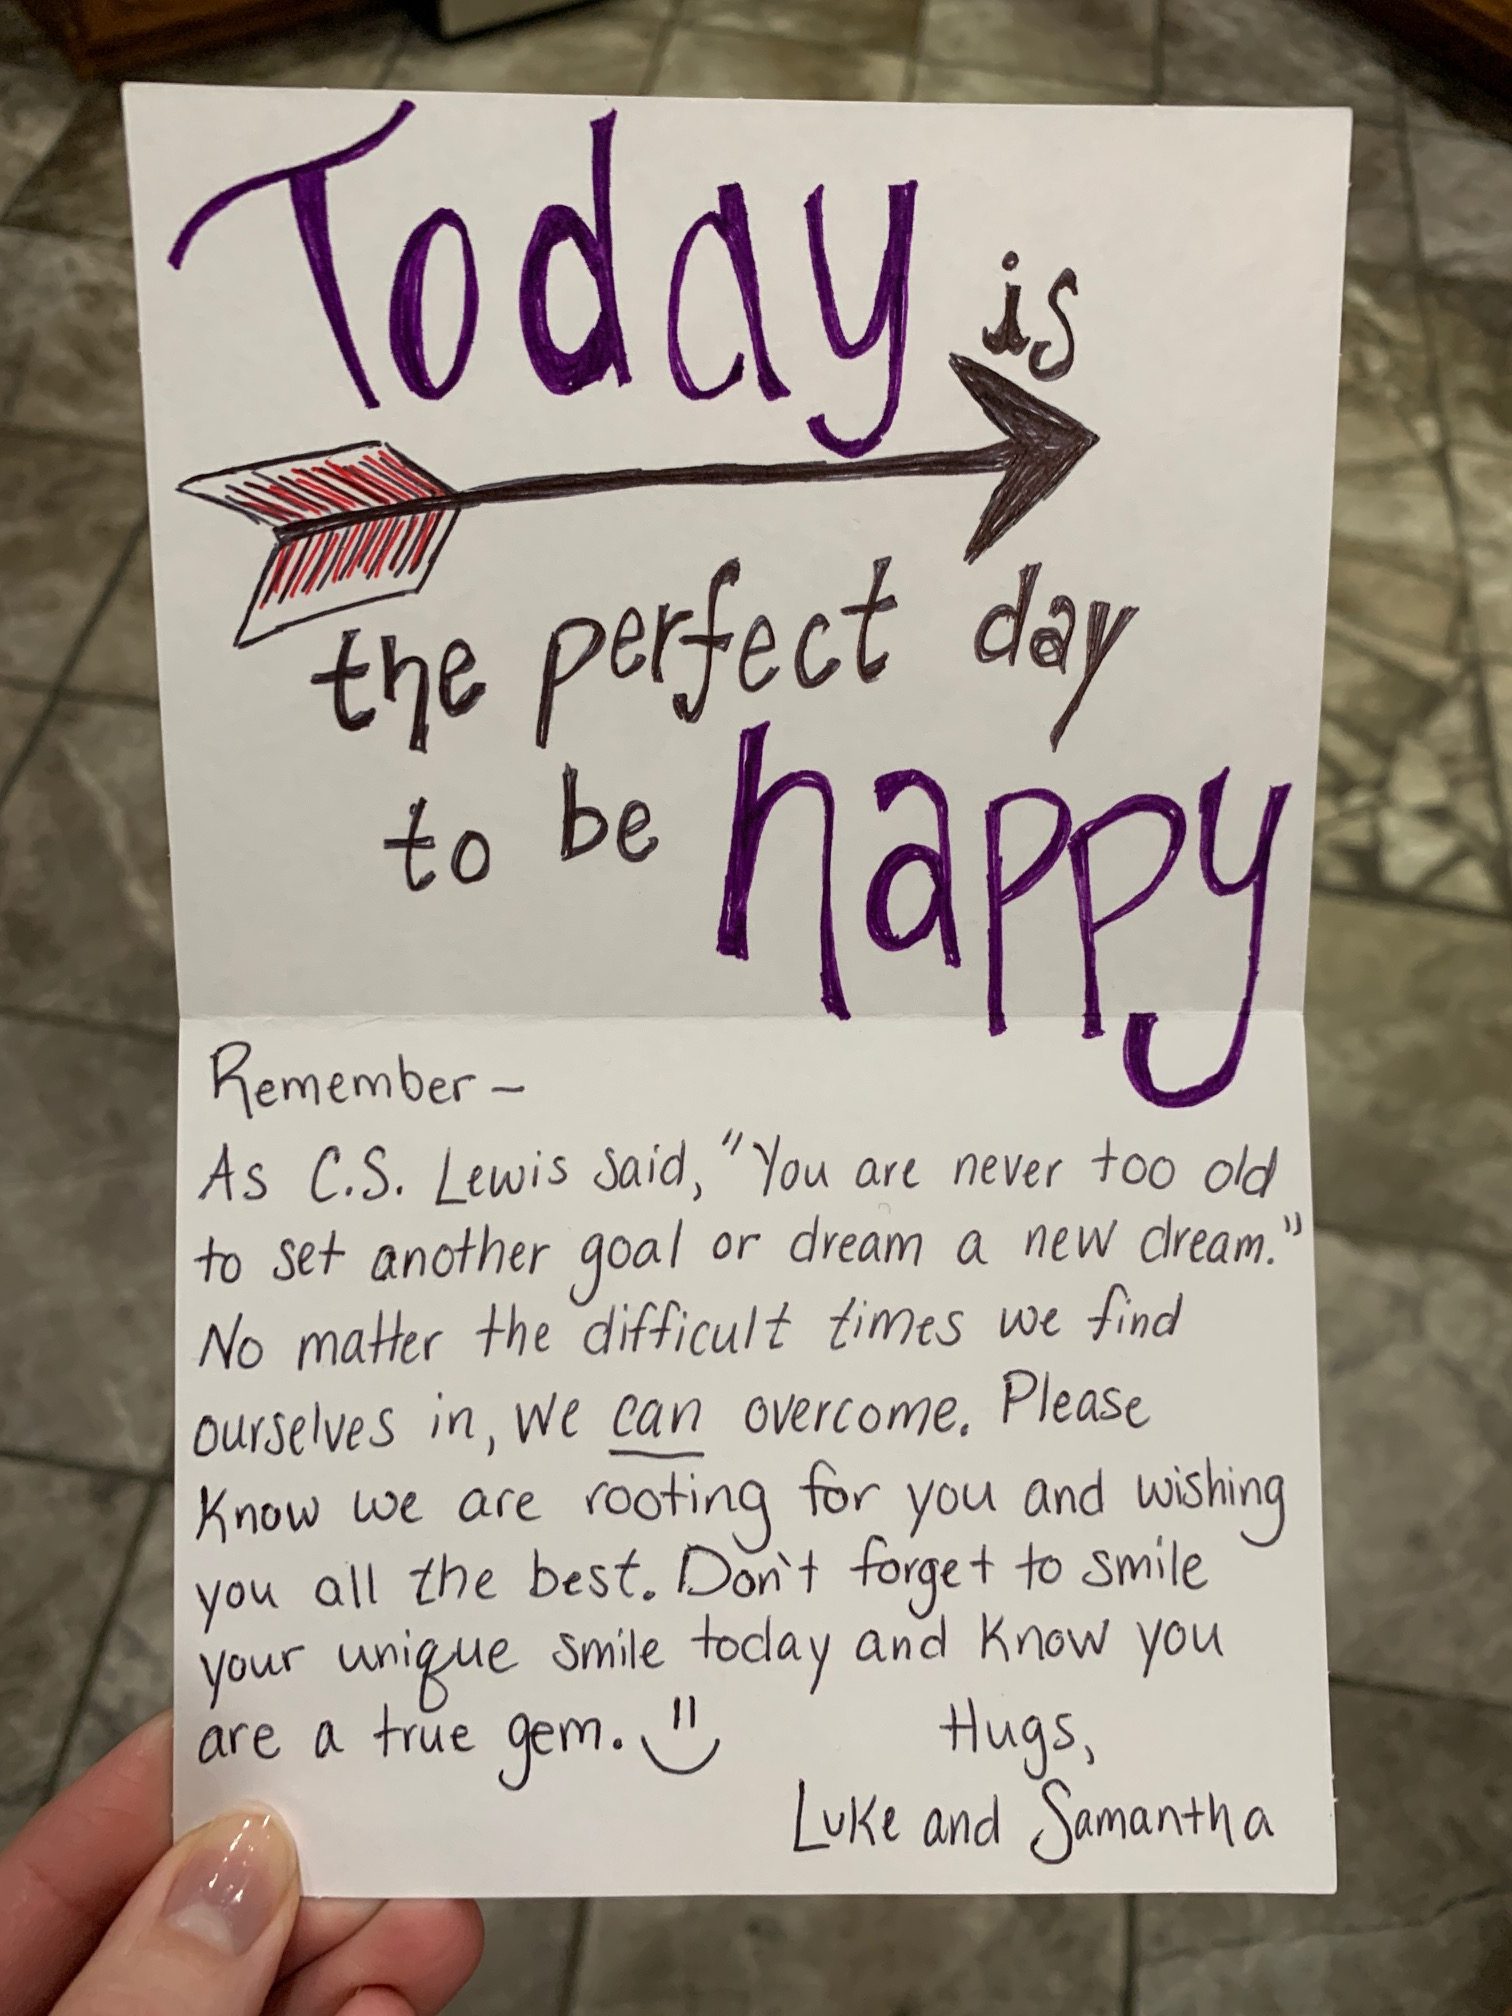 Today is
the perfect day
to be happy
Remember -
As C.S. Lewis said, "You are never too old
to set another goal or dream a new dream."
No matter the difficult times we find
ourselves in, we can overcome. Please
know we are rooting for you and wishing
you all the best. Don't forget to smile
your unique smile today and know you
are a true gem.
Hugs,
Luke and Samantha